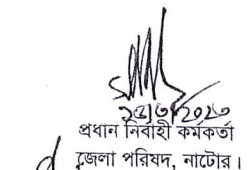 প্রধান নির্বাহী কর্মকর্তা
জেলা পরিষদ, নাটোর।